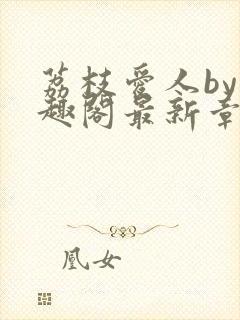 荔枝爱人by
趣阁最新章
凰女